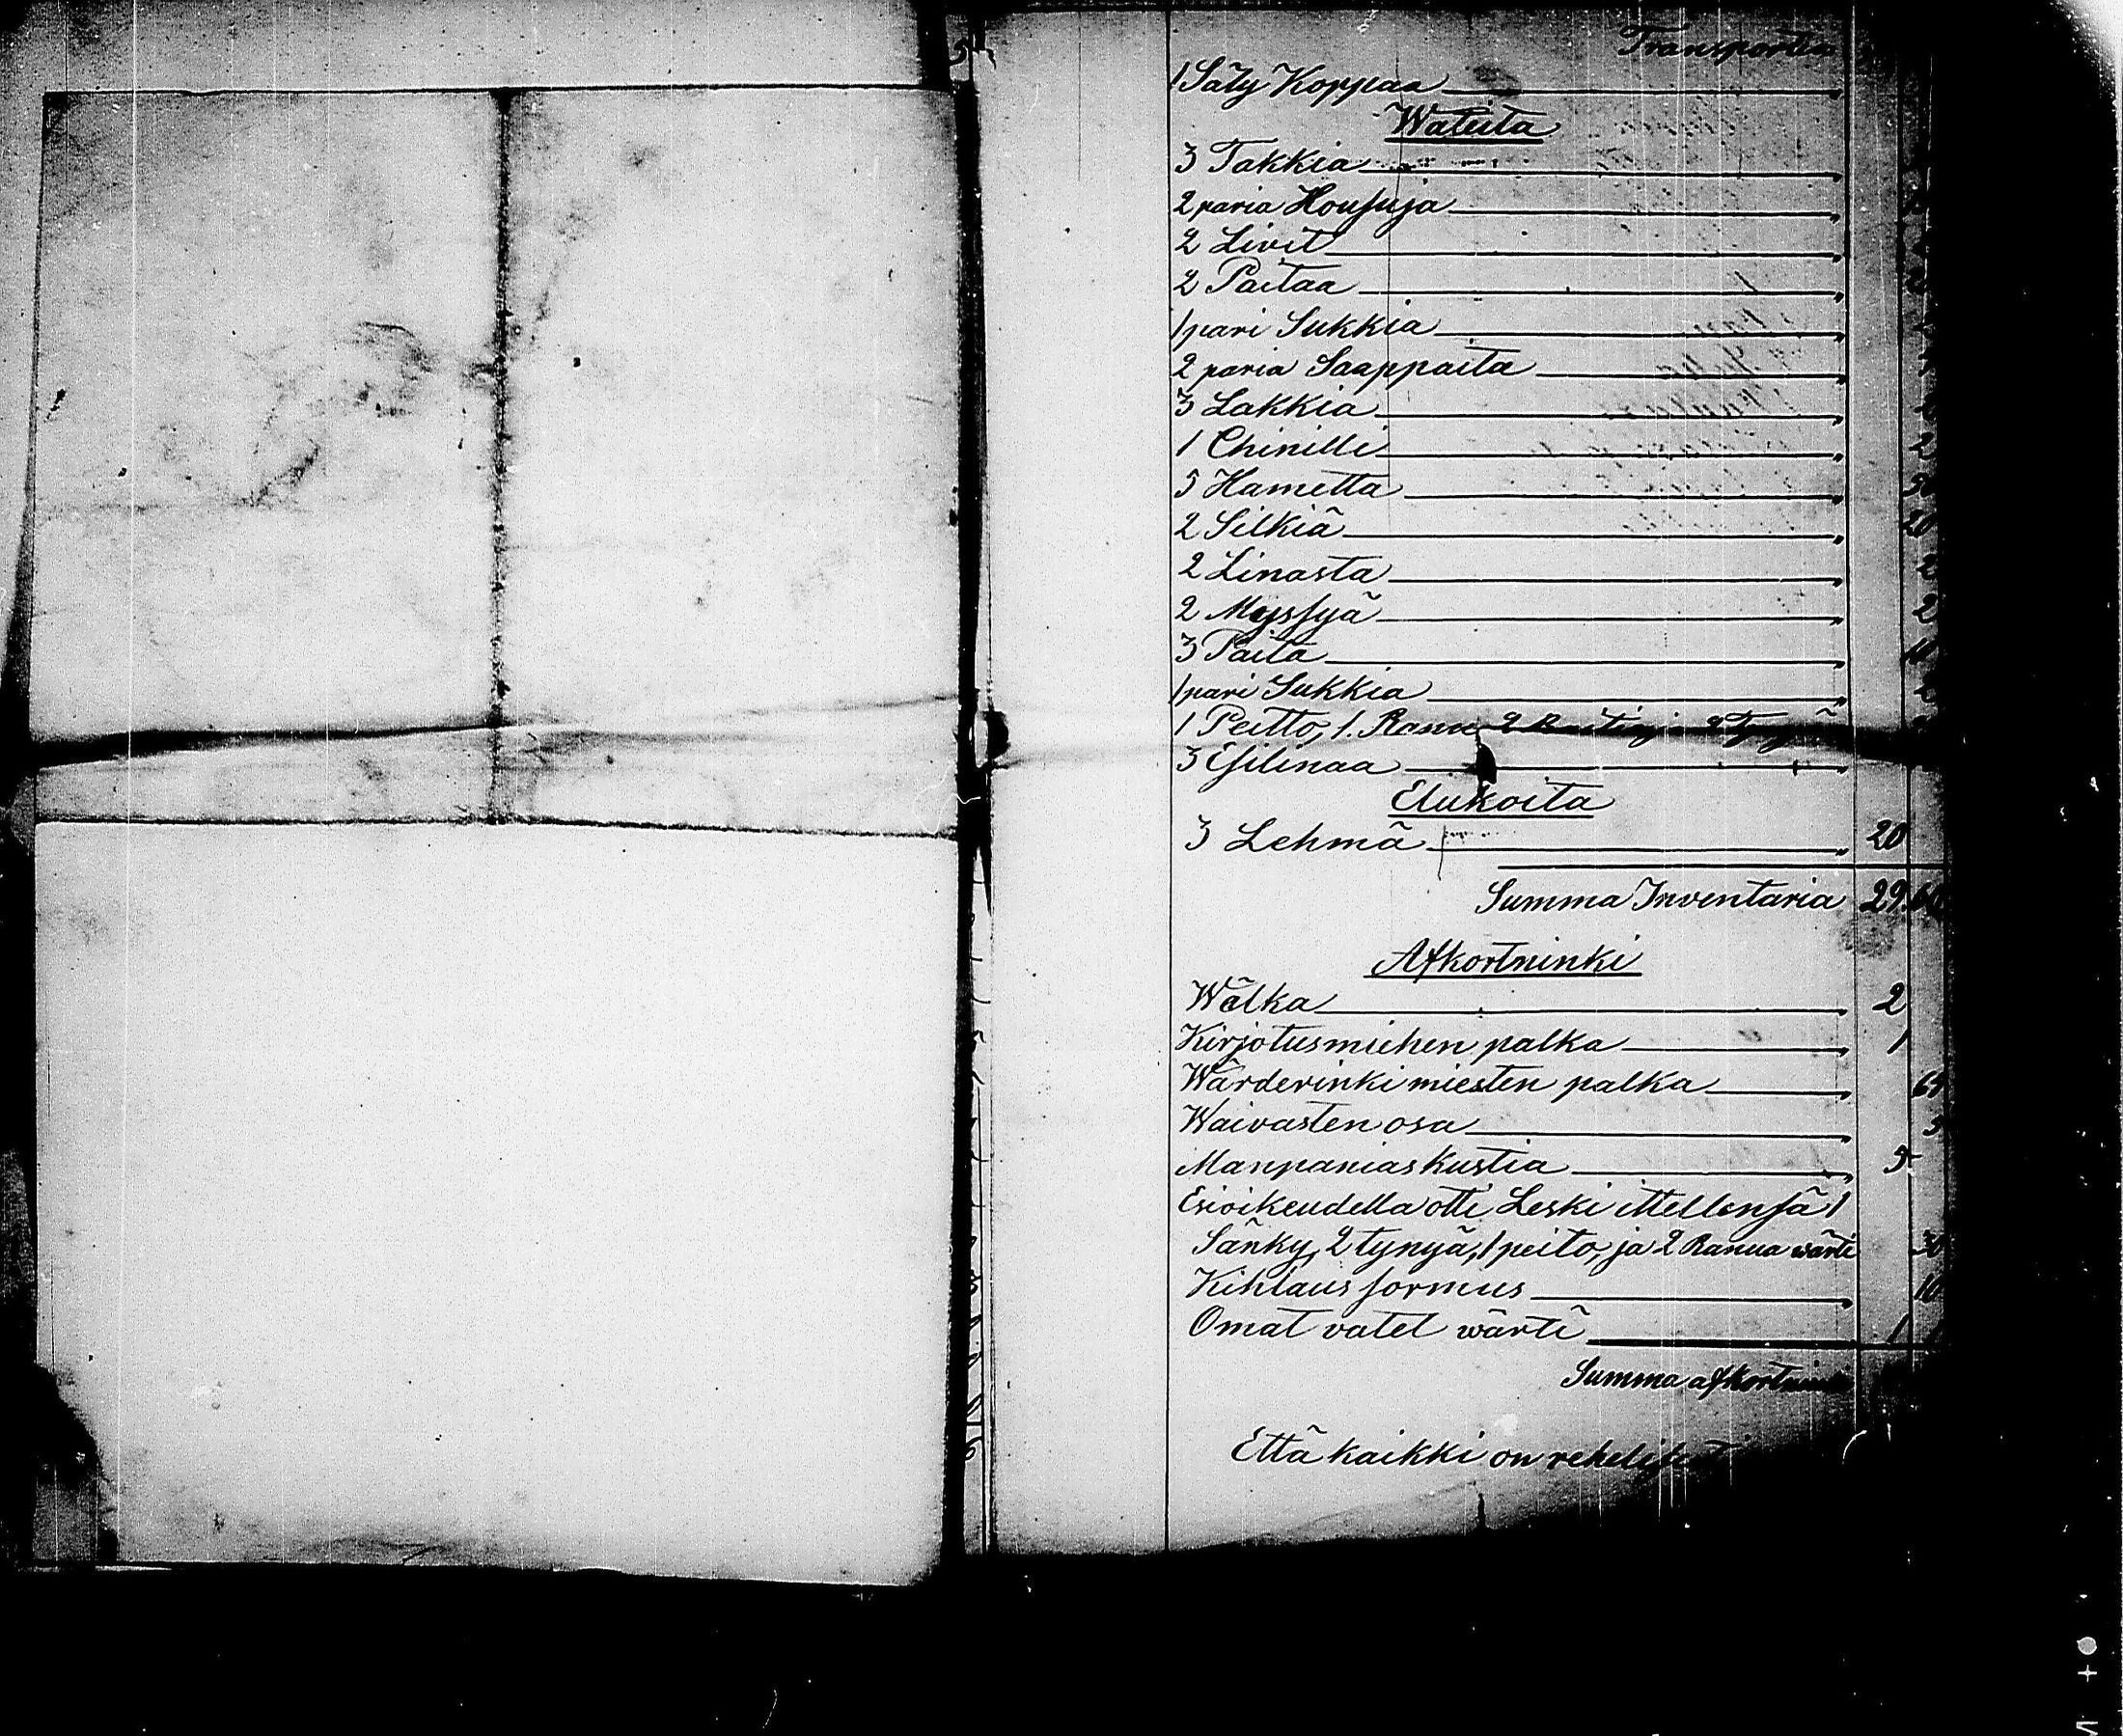 Transportia
1 Säty Koppaa
Wateita
3 Takkia
2 paria Housuja
2 Livit
2 Paitaa
1 pari Sukkia
2 paria Saappaita
3 Lakkia
1 Chinilli 2
5 Hametta
2 Silkiä 20
2 Linasta 2
2 Myssyä 2
3 Paita
1 pari Sukkia
1 Peitto, 1. Ranu 2
3 Esilinaa
Elukoita
3 Lehmä 20
Summa Inventaria 29.
Afkortninki
Wälka 2
Kirjotusmiehen palka 1
Wärderinki miesten palka 64
Waivasten osa 5
Manpaniaskustia 5
Esioikeudella otti Leski ittellensä 1
Sänky, 2 tynyä, 1 peito, ja 2 Ranua wärti 30
Kihlaus sormus 10
Omat vatet wärti 1
Summa afkortninki
Että kaikki on